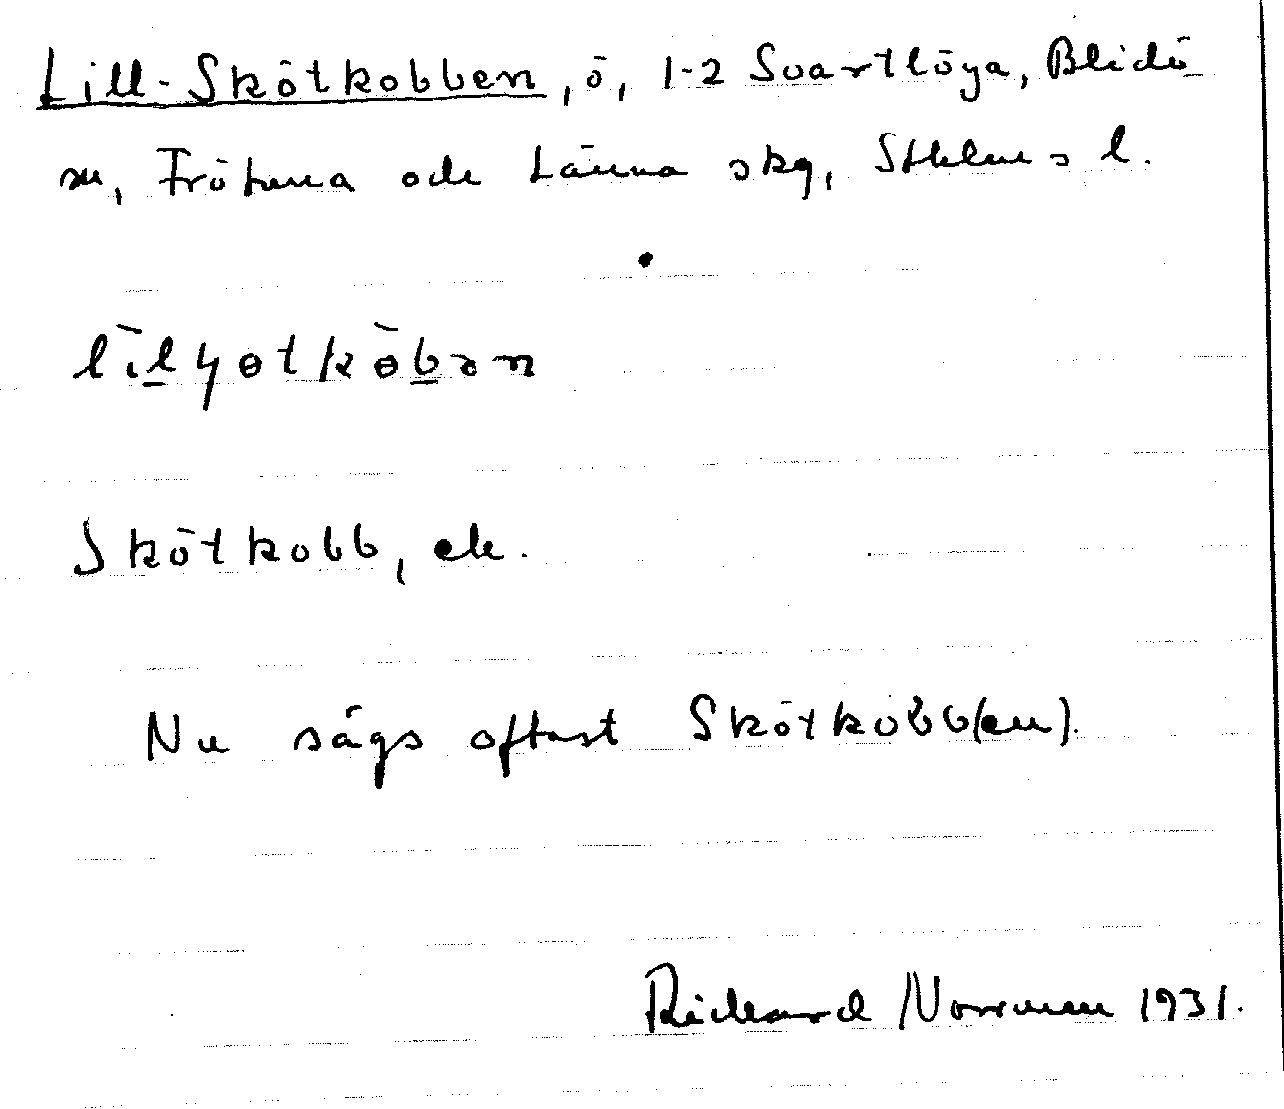 Lill-Skötkobben, ö, 1-2 Svartlöga, Blidö
sn, Frötuna och Länna skg, Sthlms l.
Skötkobb, etc.
Nu sägs oftast Skötkobb(en).
Rickard Norrman 1931.